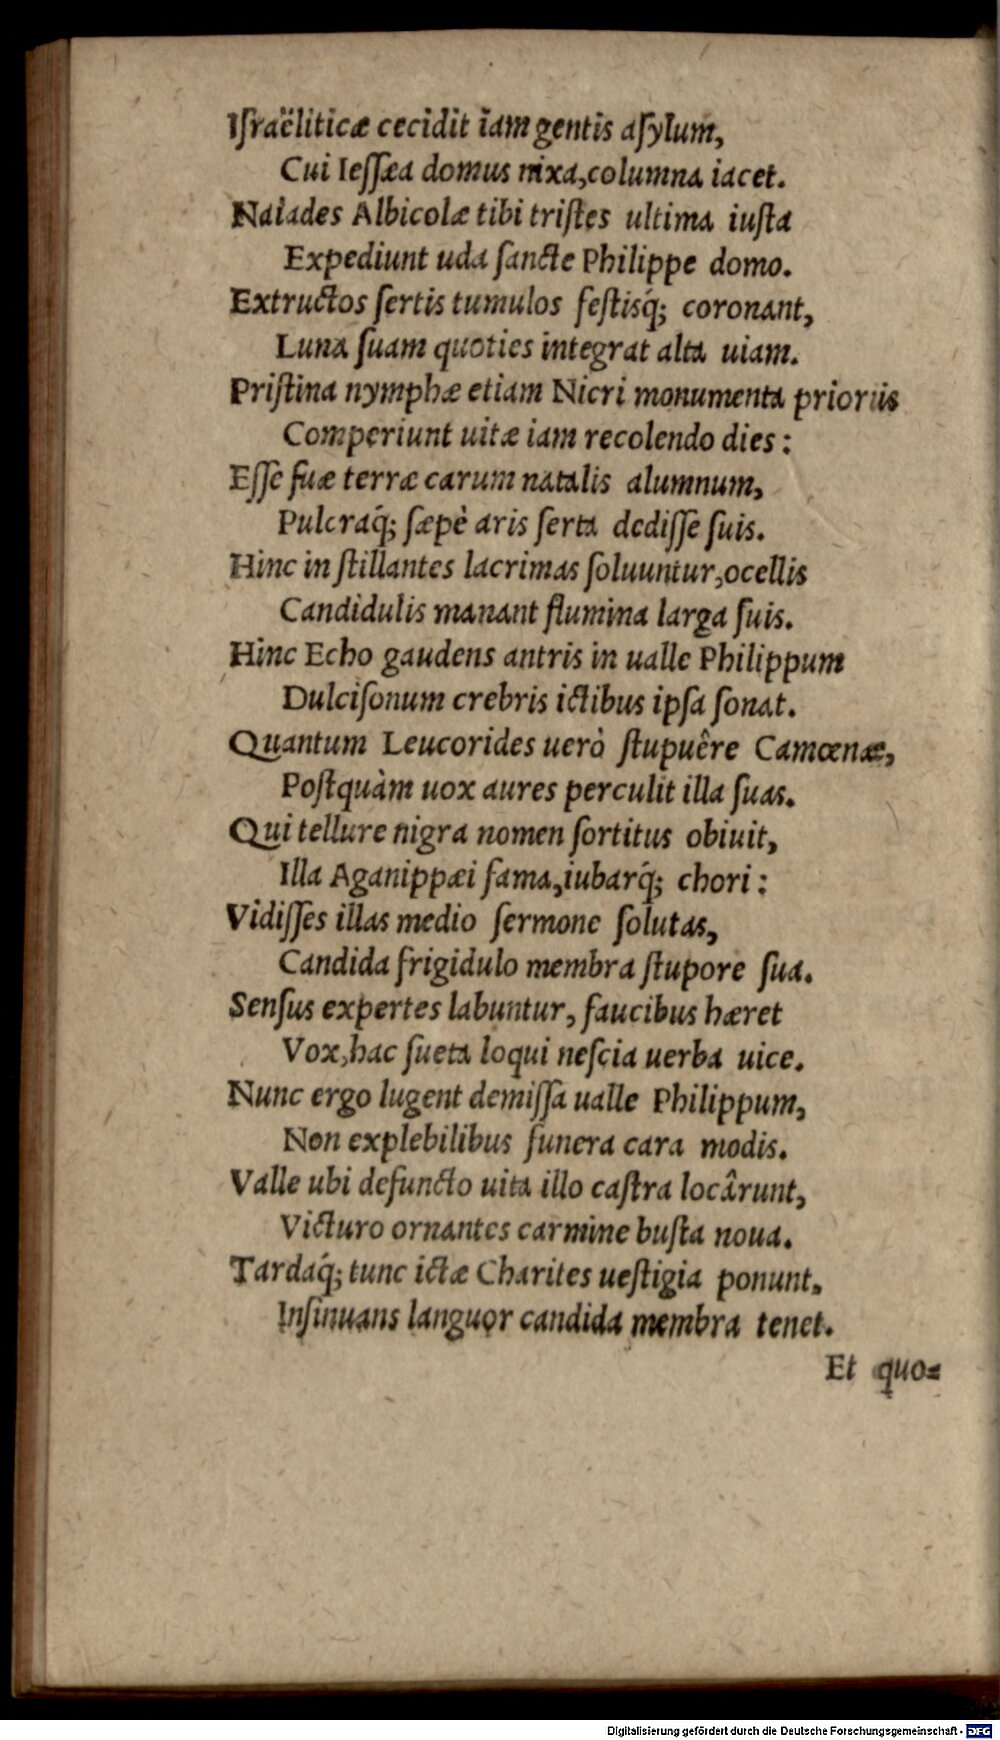 Iſraëliticæ cecidit iam gentis aſylum,
Cui Ieſſæa domus nixa, columna iacet.
Naiades Albicolæ tibi triſtes ultima iuſta
Expediunt uda ſancte Philippe domo.
Extructos ſertis tumulos feſtisq́; coronant,
Luna ſuam quoties integrat alta uiam.
Priſtina nymphæ etiam Nicri monumenta prioris
Comperiunt uitæ iam recolendo dies:
Eſſe ſuæ terræ carum natalis alumnum,
Pulcraq́; ſæpè aris ſerta dediſſe ſuis.
Hinc in ſtillantes lacrimas ſoluuntur, ocellis
Candidulis manant flumina larga ſuis.
Hinc Echo gaudens antris in ualle Philippum
Dulciſonum crebris ictibus ipſa ſonat.
Quantum Leucorides uerò ſtupuêre Camœnæ,
Poſtquàm uox aures perculit illa ſuas.
Qui tellure nigra nomen ſortitus obiuit,
Illa Aganippæi fama, iubarq́; chori:
Vidiſſes illas medio ſermone ſolutas,
Candida frigidulo membra ſtupore ſua.
Senſus expertes labuntur, faucibus hæret
Vox, hac ſueta loqui neſcia uerba uice.
Nunc ergo lugent demiſſa ualle Philippum,
Non explebilibus funera cara modis.
Valle ubi defuncto uita illo caſtra locârunt,
Victuro ornantes carmine buſta noua.
Tardaq́; tunc ictæ Charites ueſtigia ponunt,
Inſinuans languor candida membra tenet.
Et quo=
Digitalisierung gefördert durch die Deutsche Forschungsgemeinschaft - DFG